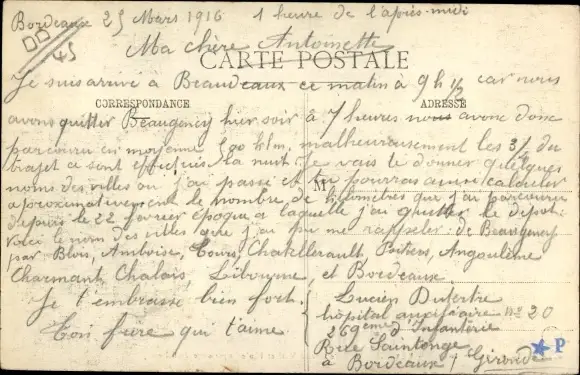 Bordeaux 25 Mars 1916 1 heure de l'après-midi
45
Ma chère Antoinette
CARTE POSTALE
Je suis arrivé à Beaudeaux ce matin à 9h ½ car nous
CORRESPONDANCE
ADRESSE
avons quitter Beaugency hier soir à 7 heures nous avons donc
parcouru en moyenne 500 klm. malheureusement les 3/4 du
trajet ce sont effectués la nuit. Je vais te donner quelques
noms des villes ou j'ai passé et tu pourras ainsi calculer
M
aproximativement le nombre de kilomètres que j'ai parcourue
depuis le 22 février époque à laquelle j'ai quitter le dépot.
Voici le nom des villes que j'ai pu me rappeler: de Beaugency
par Blois, Amboise, Tours, Chatellerault, Poitiers, Angoulème
Charmant, Chalais, Libourne, et Bordeaux
Je t'embrasse bien fort.
Ton frère qui t'aime
Lucien Dutertre
hôpital auxiliaire N° 20
269eme d'Infanterie
Rue Saintonge
à Bordeaux / Gironde
P